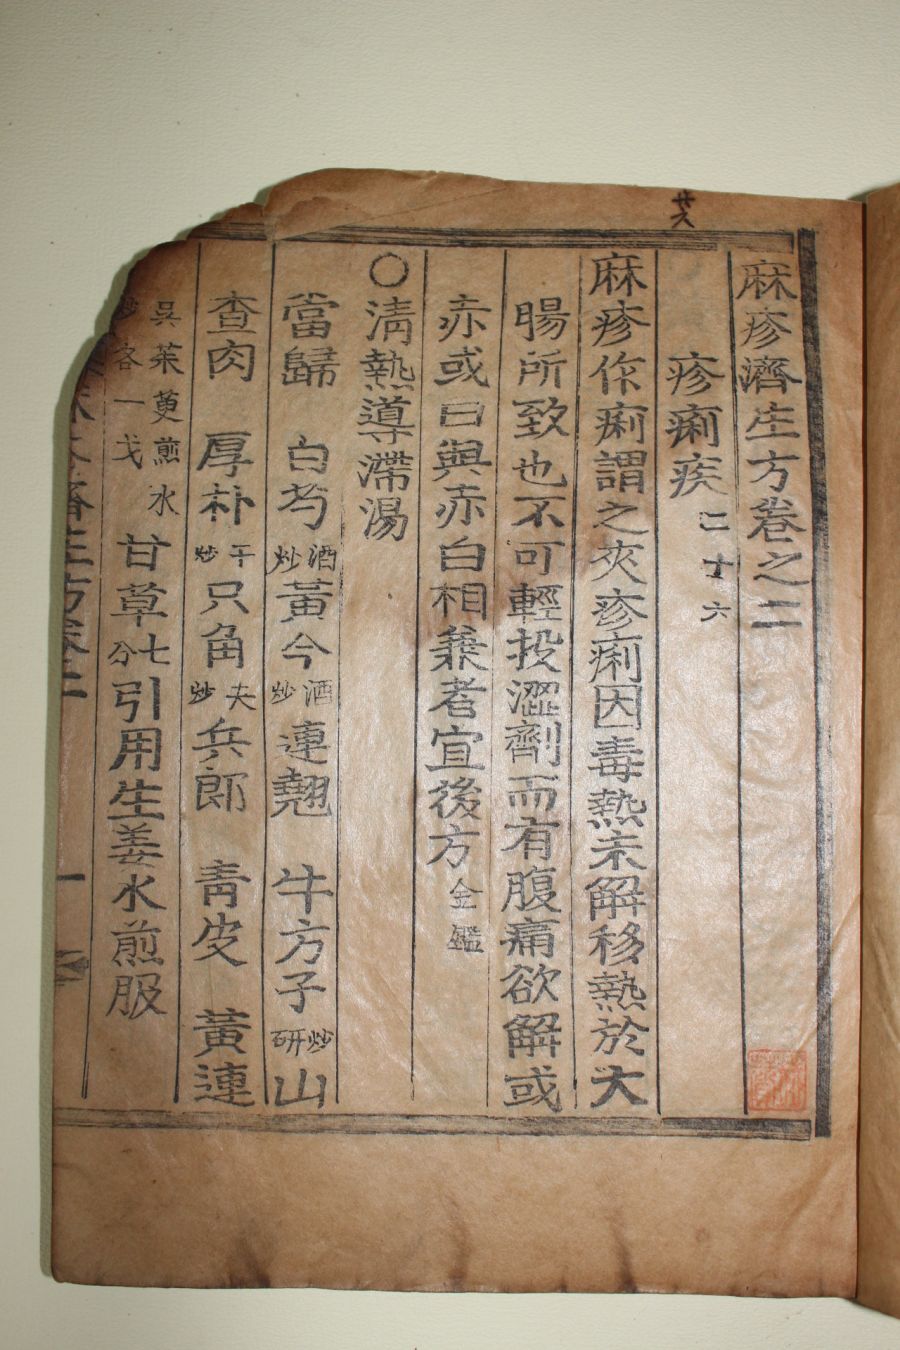 廿六
麻疹濟生方卷之二
疹痢疾 二十六
麻疹作痢謂之夾疹痢因毒熱未解移熱於大
腸所致也不可輕投澀劑而有腹痛欲解或
赤或白與赤白相兼者宜後方 金鑑
○清熱導滯湯
當歸 白芍 酒炒 黃今 酒炒 連翹 牛方子 炒研 山
查肉 厚朴 干炒 只角 夫炒 兵郎 青皮 黃連
吳茱萸煎水炒 各一戔 甘草 七分 引用生姜水煎服
麻疹濟生方卷二 一